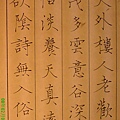 外樓人老歡
多雲意谷深
淡養天真流
陰詩無人俗